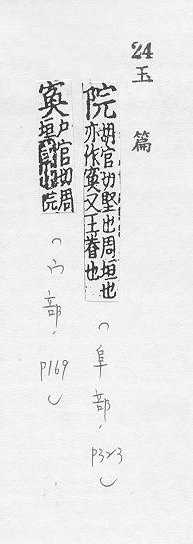 24
玉篇
院胡官切堅也周垣也
亦作寏又王眷也
（阜部，p323）
寏戶官切周
垣或也院
（宀部，p169）